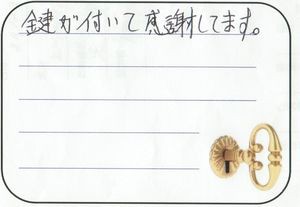 鍵が付いて感謝してます。